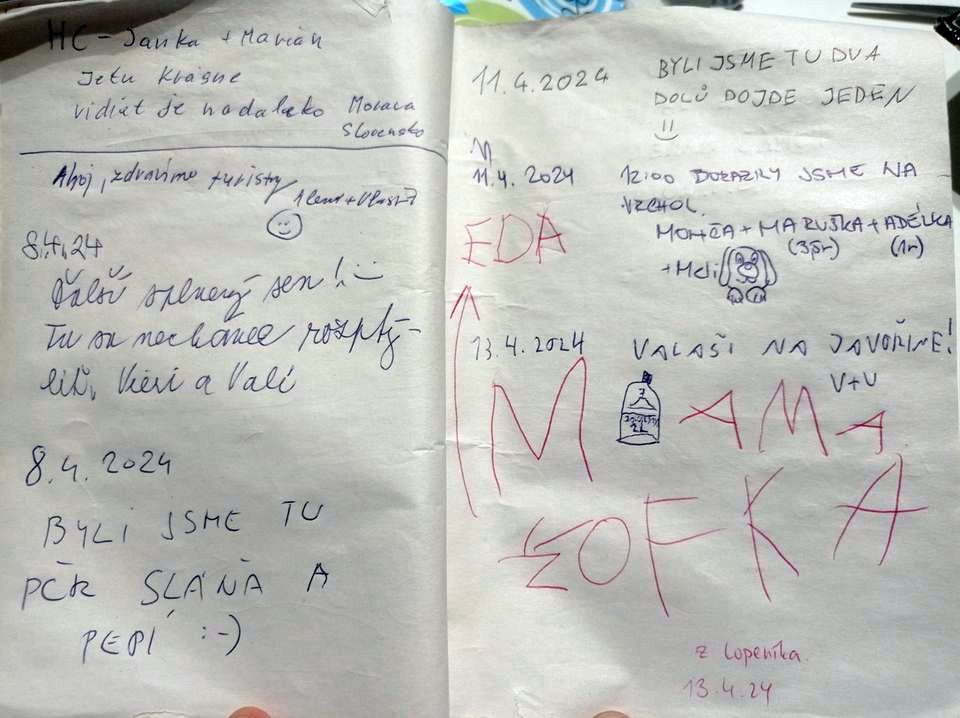 HC - Janka + Marián
Je tu krásne
vidieť je naďaleko Morava
Slovensko
Ahoj, zdravíme turisty
8.4.24
Ďalší splnený sen! :-)
Tu sa nechance rozptý-
liť, Vieri a Vali
8.4.2024
BYLI JSME TU
PČR SLÁŇA A
PEPÍ :-)
11.4.2024 BYLI JSME TU DVA
DOLŮ DOJDE JEDEN
11.4.2024 12:00 DORAZILY JSME NA
VRCHOL.
EDA
MONČA + MARUŠKA + ADÉLKA
(3šr) (1r)
+ Meli
13.4.2024 VALAŠI NA JAVOŘINĚ!
V+V
MAMA
ŽOFKA
z Lopeníka.
13.4.24